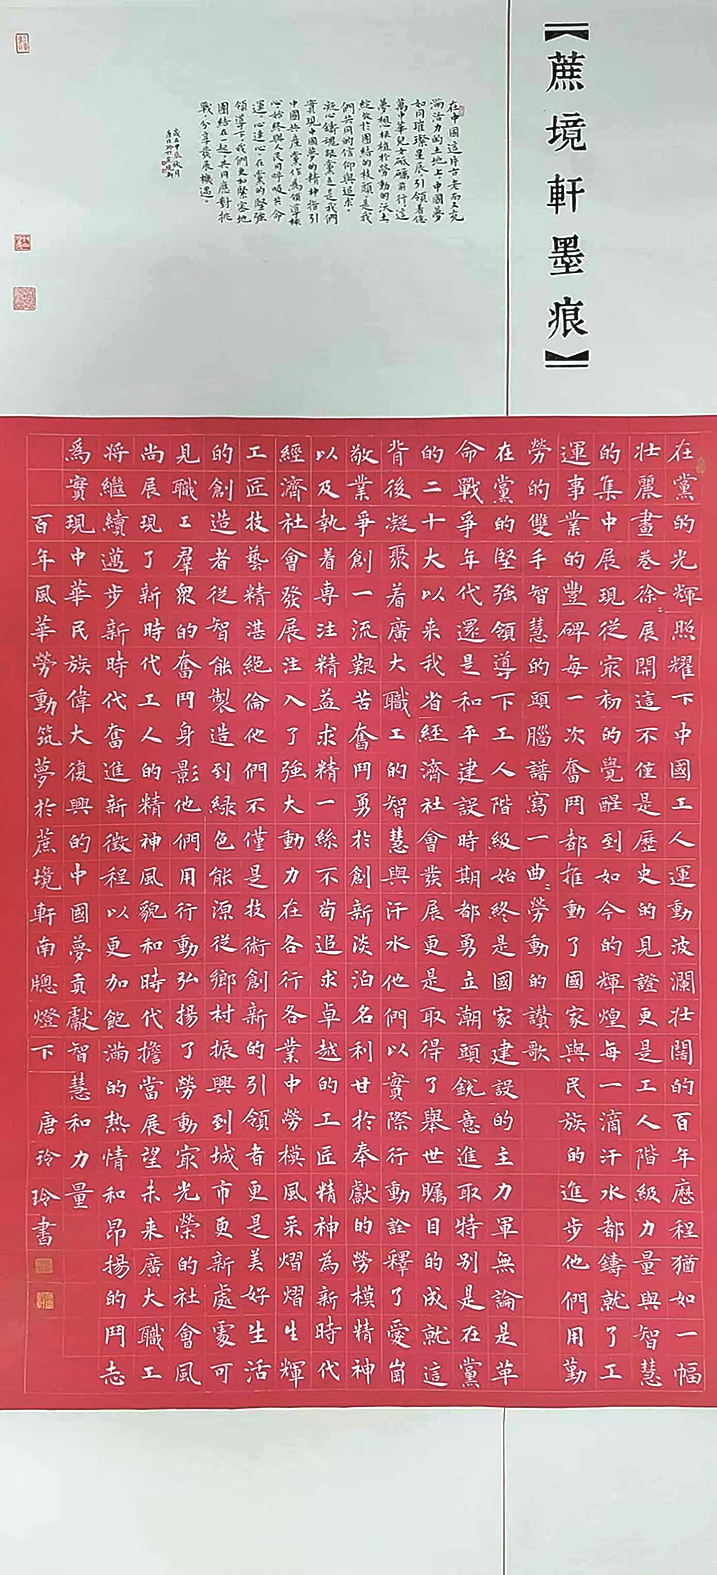 【蔗境軒墨痕】
在中國這片古老而又充
滿活力的土地上中國夢
如同璀璨星辰引領着億
萬中華兒女砥礪前行這
夢想根植於勞動的沃土
綻放於團結的枝頭是我
們共同的信仰與追求。
凝心鑄魂跟黨走是我們
實現中國夢的精神指引
中國共產黨作為領導核
心始終與人民同呼吸共命
運心連心在黨的堅強
領導下我們更加堅定地
團結在一起共同應對挑
戰,分享發展機遇。
歲在甲辰秋月
在黨的光輝照耀下中國工人運動波瀾壯闊的百年歷程猶如一幅
壯麗畫卷徐〻展開這不僅是歷史的見證更是工人階級力量與智慧
的集中展現從㝡初的覺醒到如今的輝煌每一滴汗水都鑄就了工
運事業的豐碑每一次奮鬥都推動了國家與民族的進步他們用勤
勞的雙手智慧的頭腦譜寫一曲〻勞動的讚歌
在黨的堅強領導下工人階級始終是國家建設的主力軍無論是革
命戰爭年代還是和平建設時期都勇立潮頭銳意進取特別是在黨
的二十大以來我省經濟社會發展更是取得了舉世矚目的成就這
背後凝聚着廣大職工的智慧與汗水他們以實際行動詮釋了愛崗
敬業爭創一流艱苦奮鬥勇於創新淡泊名利甘於奉獻的勞模精神
以及執着專注精益求精一絲不苟追求卓越的工匠精神為新時代
經濟社會發展注入了強大動力在各行各業中勞模風采熠熠生輝
工匠技藝精湛絕倫他們不僅是技術創新的引領者更是美好生活
的創造者從智能製造到綠色能源從鄉村振興到城市更新處處可
見職工羣衆的奮鬥身影他們用行動弘揚了勞動㝡光榮的社會風
尚展現了新時代工人的精神風貌和時代擔當展望未來廣大職工
將繼續邁步新時代奮進新徵程以更加飽滿的熱情和昂揚的鬥志
爲實現中華民族偉大復興的中國夢貢獻智慧和力量
百年風華勞動筑夢於蔗境軒南牕燈下 唐玲玲書